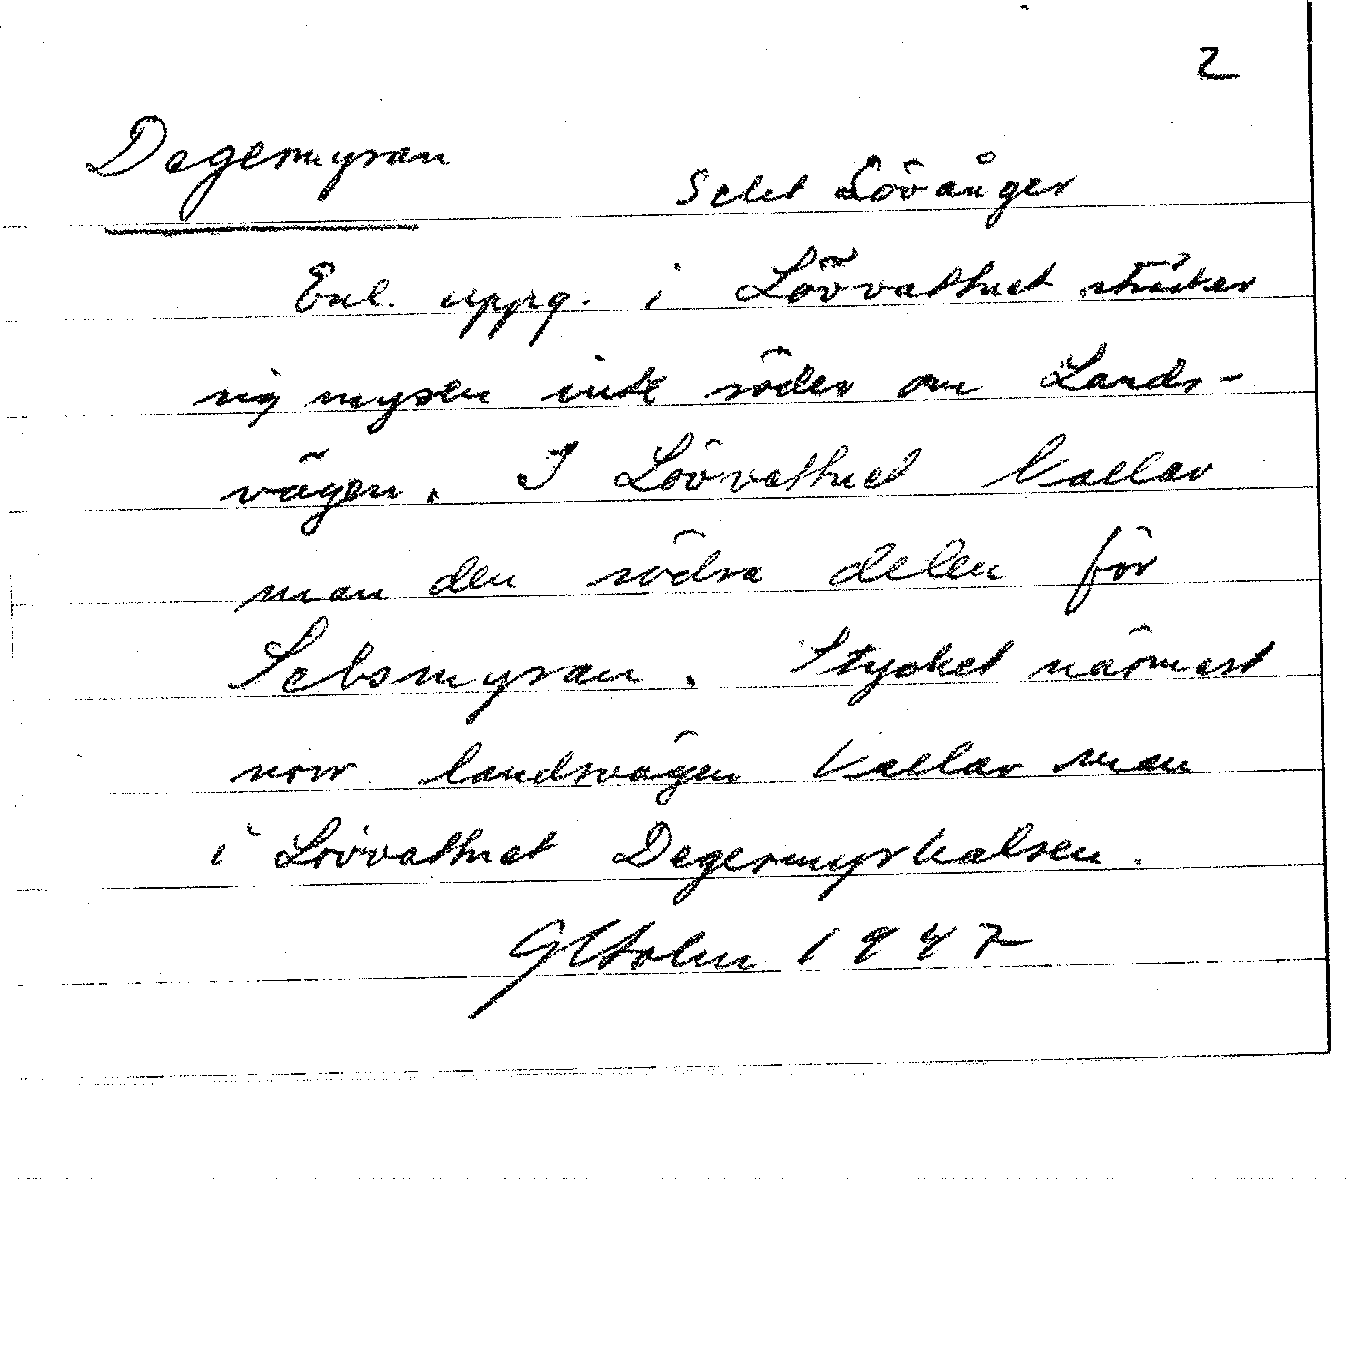 2
Degermyran
Selet Lövånger
Enl. uppg. i Lövvattnet sträcker
sig myren inte söder om Lands-
vägen. I Lövvattnet kallar
man den södra delen för
Selsmyran. Stycket närmast
norr landsvägen kallar man
i Lövvattnet Degermyrhalsen.
1947